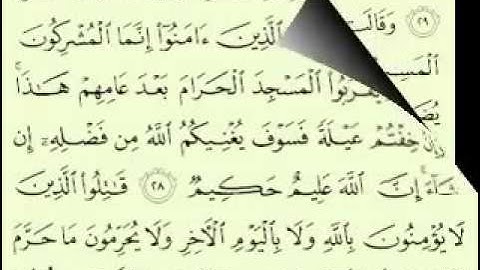 ٢٩ وَقَالَتِ ٱلَّذِينَ ءَامَنُوٓا۟ إِنَّمَا ٱلْمُشْرِكُونَ
يَقْرَبُوا۟ ٱلْمَسْجِدَ ٱلْحَرَامَ بَعْدَ عَامِهِمْ هَـٰذَا ۚ
وَإِنْ خِفْتُمْ عَيْلَةً فَسَوْفَ يُغْنِيكُمُ ٱللَّهُ مِن فَضْلِهِۦٓ إِن
شَآءَ ۚ إِنَّ ٱللَّهَ عَلِيمٌ حَكِيمٌ ٢٨ قَـٰتِلُوا۟ ٱلَّذِينَ
لَا يُؤْمِنُونَ بِٱللَّهِ وَلَا بِٱلْيَوْمِ ٱلْـَٔاخِرِ وَلَا يُحَرِّمُونَ مَا حَرَّمَ